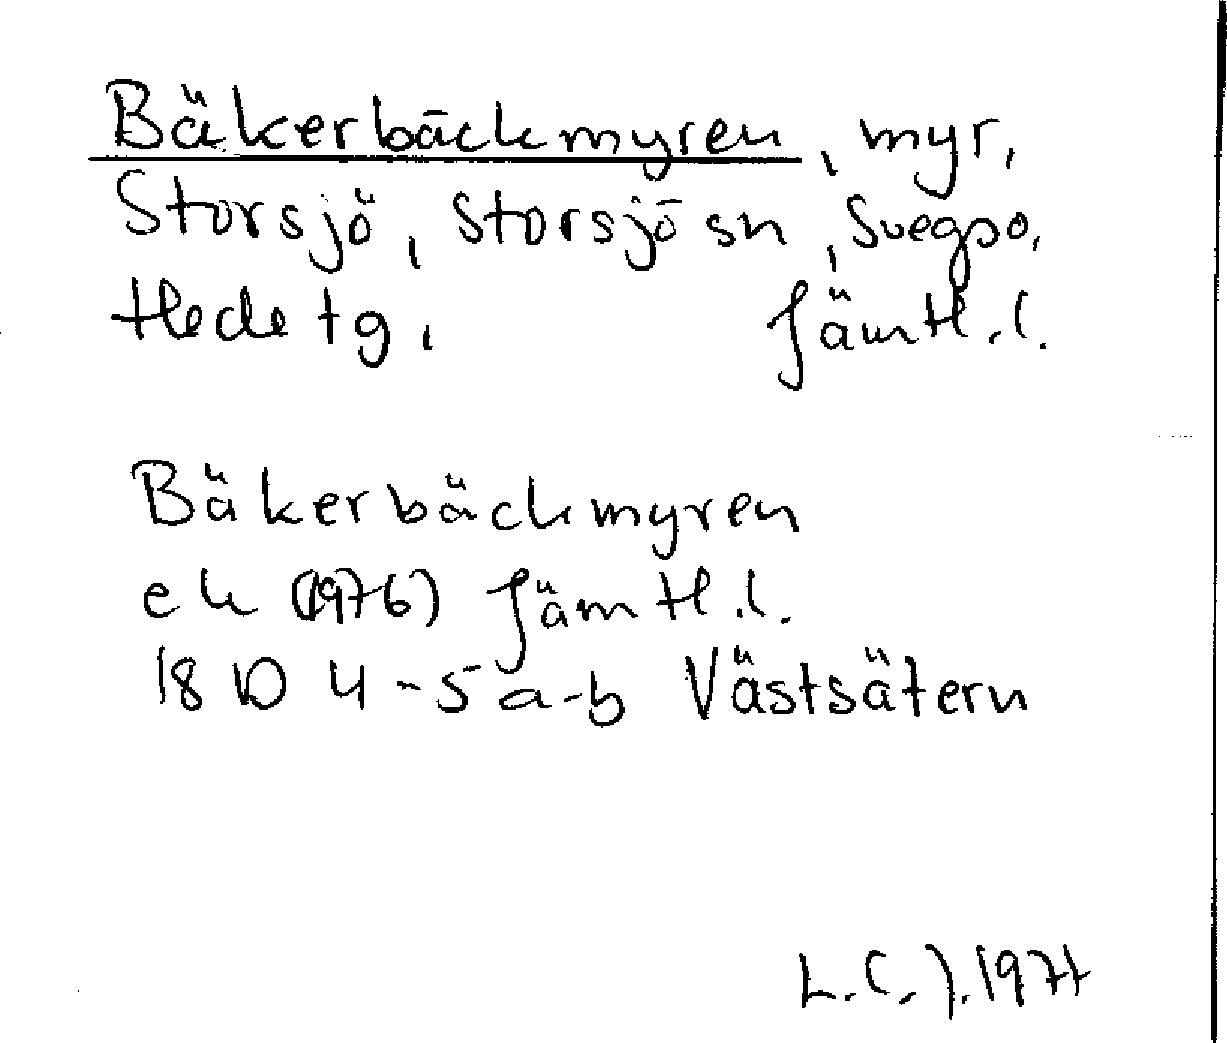 Bäkerbäckmyren, myr,
Storsjö, Storsjö sn, Svegs po,
Hede tg, Jämtl. l.
Bäkerbäckmyren
ek (1976) Jämtl. l.
18 D 4-5 a-b Västsätern
L.C.J. 1977